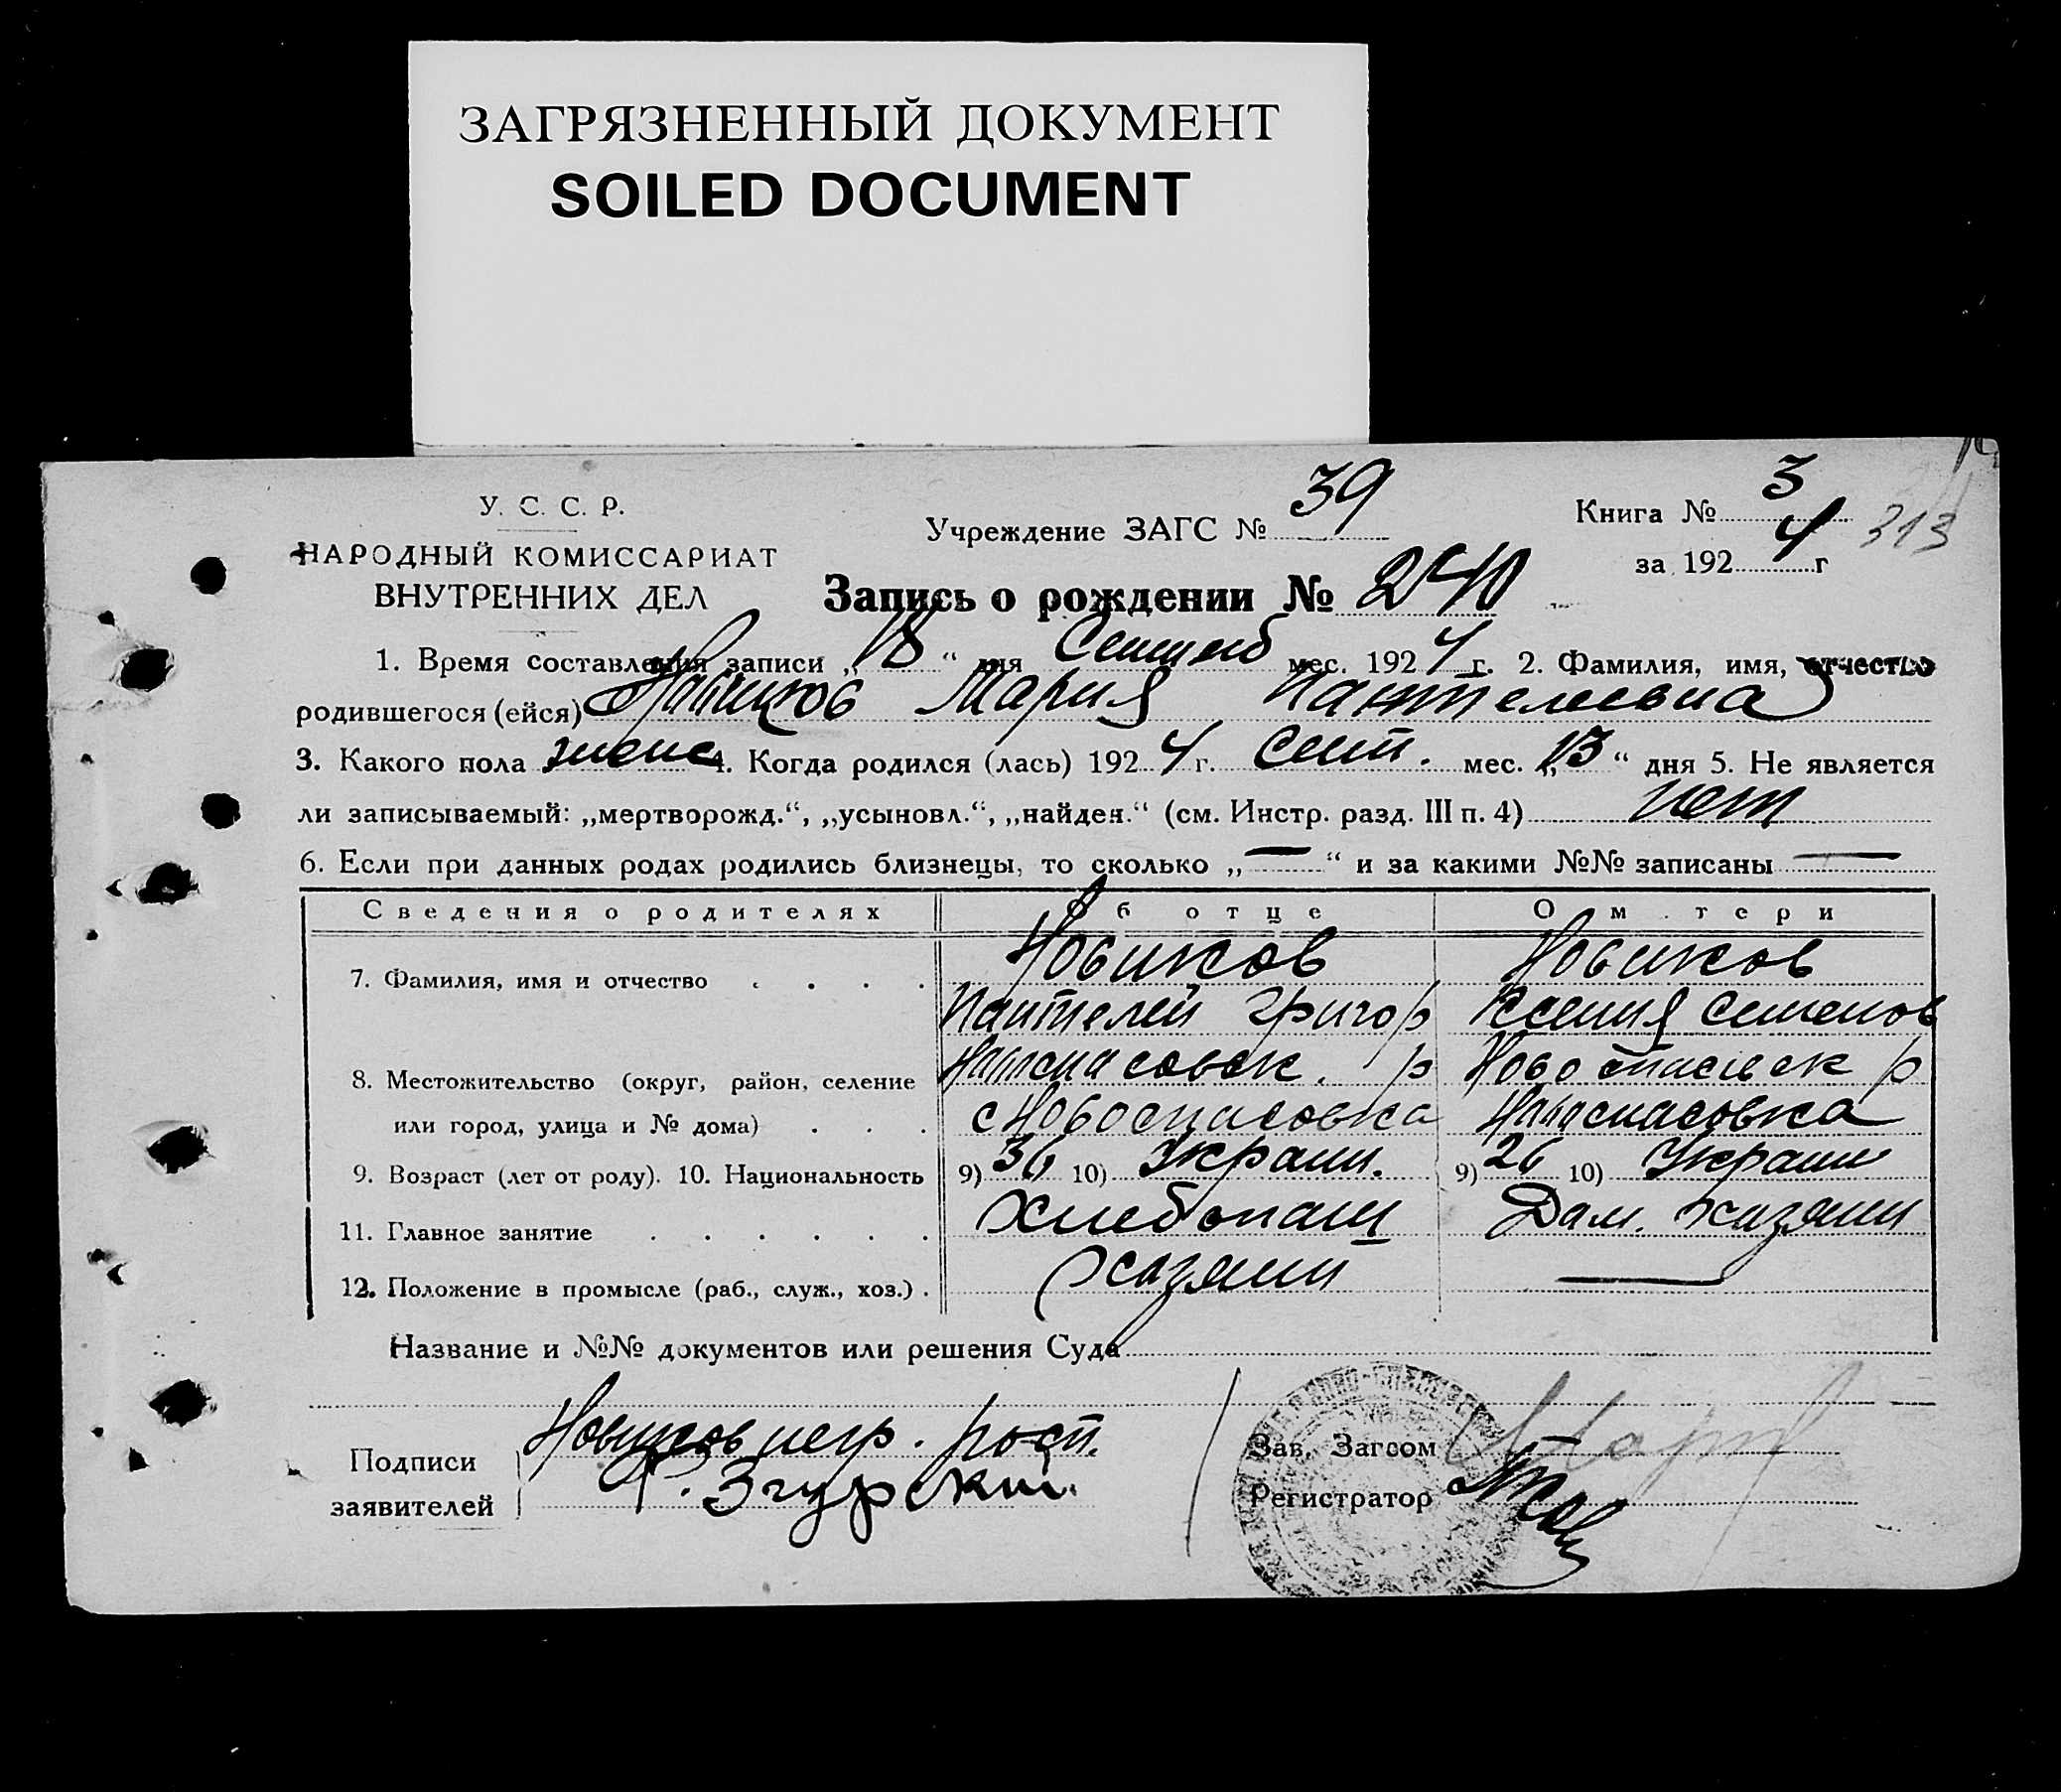 ЗАГРЯЗНЕННЫЙ ДОКУМЕНТ
SOILED DOCUMENT
У. С. С. Р.
НАРОДНЫЙ КОМИССАРИАТ
ВНУТРЕННИХ ДЕЛ
Учреждение ЗАГС № 39
Книга № 3
за 1924 г
313
Запись о рождении № 240
1. Время составления записи „18“ дня Сентяб мес. 1924 г. 2. Фамилия, имя, отчество
родившегося (ейся) Новиков Мария Пантелеевна
3. Какого пола женс 4. Когда родился (лась) 1924 г. Сент. мес. „13“ дня 5. Не является
ли записываемый: „мертворожд.“, „усыновл.“, „найден.“ (см. Инстр. разд. III п. 4) нет
6. Если при данных родах родились близнецы, то сколько „—“ и за какими №№ записаны —
Сведения о родителях Об отце О м тери
7. Фамилия, имя и отчество . . . . Новиков Новиков
Пантелей Григор Ксения Семенов
8. Местожительство (округ, район, селение Новоспасовск. р Новоспасовск р
или город, улица и № дома) . . . с Новоспасовка Новоспасовка
9. Возраст (лет от роду). 10. Национальность 9) 36 10) Украин. 9) 26 10) Украин
11. Главное занятие . . . . . . Хлебопаш Дом. хазяин
12. Положение в промысле (раб., служ., хоз.) . хазяин —
Название и №№ документов или решения Суда
Подписи
заявителей
Новиков негр. росп.
Згурский
Зав. Загсом
Регистратор